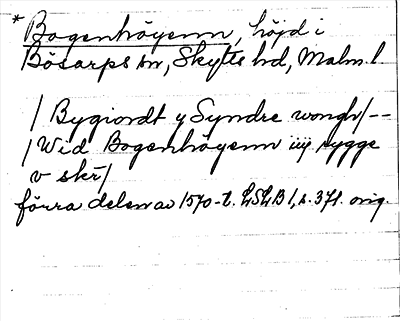 * Bogenhöyenn, höjd i
Bösarps sn, Skytts hd, Malm. l.
/ Bygiordt y Syndre wongh/--
/ Wid Bogenhöyenn iiij rygge
v skr/
förra delen av 1570-t. LSLB 1, s. 371. orig.